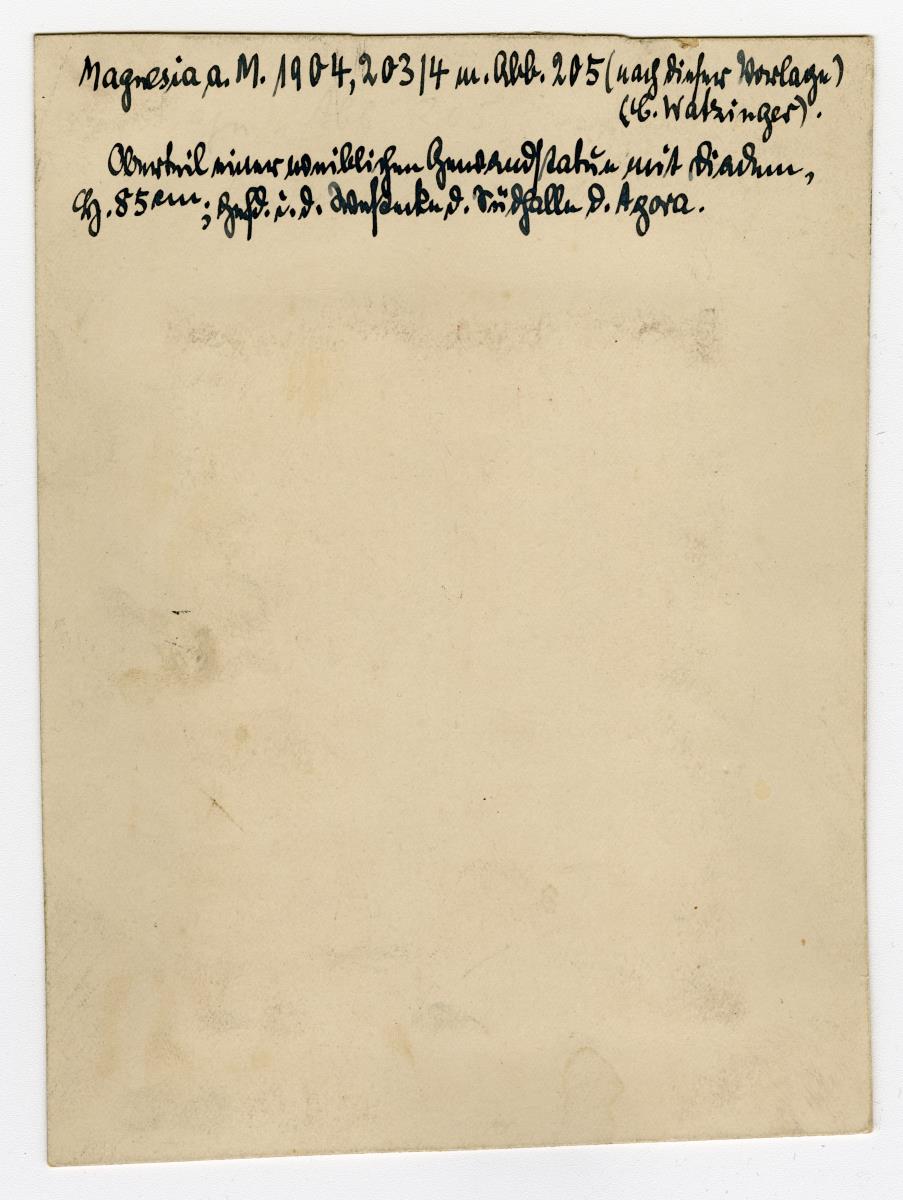 Magnesia a. M. 1904, 203/4 m. Abb. 205 (nach dieser Vorlage)
(C. Watzinger).
Oberteil einer weiblichen Gewandstatue mit Diadem,
H. 85 cm; gefd. i. d. Westecke d. Südhalle d. Agora.